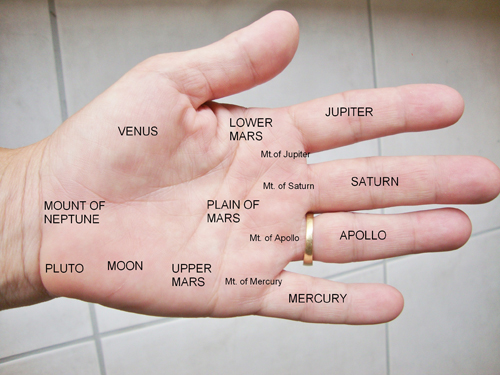 JUPITER
LOWER
MARS
VENUS
Mt.of Jupiter
SATURN
Mt. of Saturn
MOUNT OF
NEPTUNE
PLAIN OF
MARS
APOLLO
Mt. of Apollo
PLUTO
MOON
UPPER
MARS
Mt. of Mercury
MERCURY